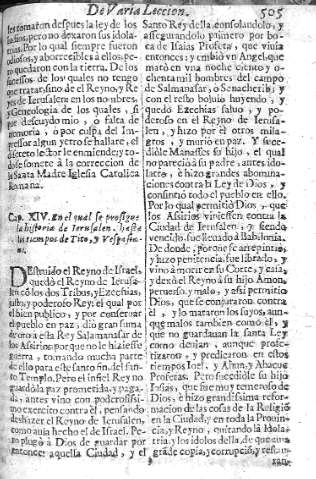 De Varia Leccion.
505
les tomaron despues la ley de los
Iudios, pero no dexaron sus idola-
trias. Por lo qual siempre fueron
odiosos, y aborrecibles a ellos, pe-
ro quedaron con la tierra. De los
sucessos de los quales no tengo
que tratar, sino de el Reyno, y Re-
yes de Ierusalen en los nombres,
y Genealogia de los quales, si
por descuydo mio, ò falta de
memoria, ò por culpa del Im-
pressor algun yerro se hallare, el
discreto lector le enmiende, y to-
do se somete à la correccion de
la Santa Madre Iglesia Catolica
Romana.
Cap. XIV. En el qual se prosigue
la historia de Ierusalen, hasta
los tiempos de Tito, y Vespasia-
no.
DEstruido el Reyno de Israel,
quedò el Reyno de Ierusa-
lèn cõ los dos Tribus, y Ezechias,
justo, y poderoso Rey: el qual por
el bien publico, y por conservar
el pueblo en paz, diò gran suma
de oro à esta Rey Salamanasar de
los Assirios, porque no le hiziesse
guerra, tomando mucha parte
de ello para este santo fin, del san-
to Templo. Pero el infiel Rey no
guardò la paz prometida, y paga-
da, antes vino con poderossi-
mo exercito contra èl, pensando
deshazer el Reyno de Ierusalen,
como avia hecho el de Israel. Pe-
ro plugò à Dios de guardar por
entonces aquella Ciudad, y el
Santo Rey della consolandolo, y
assegurandolo primero por bo-
ca de Isaias Profeta, que vivia
entonces: y embiò vn Angel, que
matò en vna noche ciento y o-
chenta mil hombres del campo
de Salmanasar, ò Senacherib; y
con el resto bolviò huyendo, y
quedò Ezechias salvo, y po-
deroso en el Reyno de Ierusa-
len, y hizo por èl otros mila-
gros, y murio en paz. Y suce-
diòle Manasses su hijo, el qual
no pareciò a su padre, antes ido-
latrò, è hizo grandes abomina-
ciones contra la Ley de Dios, y
consintiò todo el pueblo en ello.
Por lo qual permitiò Dios, que
los Assirios viniessen contra la
Ciudad de Ierusalen, y siendo
vencido, fue llevado à Babilonia.
De donde, porque se arrepintiò,
y hizo penitencia, fue librado, y
vino à morir en su Corte, y casa,
y dexò el Reyno à su hijo Amon,
perverso, y malo, y assi permitiò
Dios, que se conjuraron contra
èl, y lo mataron los suyos, aun-
que malos tambien como èl, y
que no guardavan la santa Ley
como devian, aunque profe-
tizaron, y predicaron en estos
tiempos Ioel, y Aban, y Abacuc
Profetas. Pero sucediòle su hijo
Iosias, que fue muy temeroso de
Dios, è hizo grandissima refor-
macion de las cosas de la Religiõ
en la Ciudad, y en toda la Provin-
cia, y Reyno, quitando la Idola-
tria, y los idolos della, de que avia
grãde copia, y corrupciò, y restau-
ran-